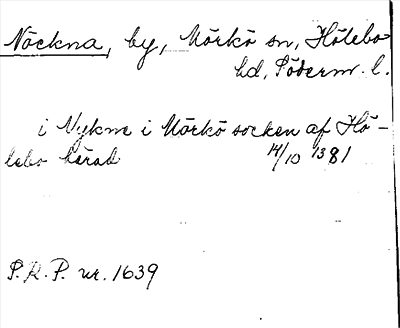 Nöckna, by, Mörkö sn, Hölebo
hd, Söderm. l.
i Nykne i Mörkö socken af Hö-
lebo hérad 14/10 1381
S.R.P. nr. 1639